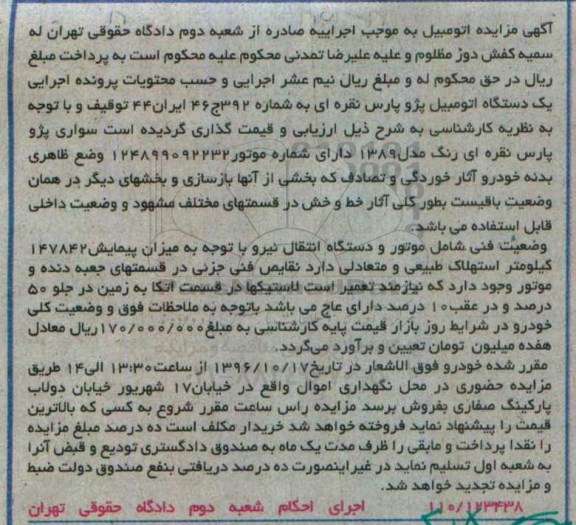 آگهی مزایده اتومبیل به موجب اجراییه صادره از شعبه دوم دادگاه حقوقی تهران له
سمیه کفش دوز مظلوم و علیه علیرضا تمدنی محکوم علیه محکوم است به پرداخت مبلغ
ریال در حق محکوم له و مبلغ ریال نیم عشر اجرایی و حسب محتویات پرونده اجرایی
یک دستگاه اتومبیل پژو پارس نقره ای به شماره ۳۹۲ج۴۶ ایران۴۴ توقیف و با توجه
به نظریه کارشناسی به شرح ذیل ارزیابی و قیمت گذاری گردیده است سواری پژو
پارس نقره ای رنگ مدل۱۳۸۹ دارای شماره موتور۱۲۴۸۹۹۰۹۲۲۳۲ وضع ظاهری
بدنه خودرو آثار خوردگی و تصادف که بخشی از آنها بازسازی و بخشهای دیگر در همان
وضعیت باقیست بطور کلی آثار خط و خش در قسمتهای مختلف مشهود و وضعیت داخلی
قابل استفاده می باشد.
وضعیت فنی شامل موتور و دستگاه انتقال نیرو با توجه به میزان پیمایش۱۴۷۸۴۲
کیلومتر استهلاک طبیعی و متعادلی دارد نقایص فنی جزئی در قسمتهای جعبه دنده و
موتور وجود دارد که نیازمند تعمیر است لاستیکها در قسمت اتکا به زمین در جلو ۵۰
درصد و در عقب۱۰ درصد دارای عاج می باشد باتوجه به ملاحظات فوق و وضعیت کلی
خودرو در شرایط روز بازار قیمت پایه کارشناسی به مبلغ۱۷۰/۰۰۰/۰۰۰ریال معادل
هفده میلیون تومان تعیین و برآورد می‌گردد.
مقرر شده خودرو فوق الاشعار در تاریخ۱۳۹۶/۱۰/۱۷ از ساعت۱۳:۳۰ الی۱۴ طریق
مزایده حضوری در محل نگهداری اموال واقع در خیابان۱۷ شهریور خیابان دولاب
پارکینگ صفاری بفروش برسد مزایده راس ساعت مقرر شروع به کسی که بالاترین
قیمت را پیشنهاد نماید فروخته خواهد شد خریدار مکلف است ده درصد مبلغ مزایده
را نقدا پرداخت و مابقی را ظرف مدت یک ماه به صندوق دادگستری تودیع و قبض آنرا
به شعبه اول تسلیم نماید در غیراینصورت ده درصد دریافتی بنفع صندوق دولت ضبط
و مزایده تجدید خواهد شد.
۱۱۰/۱۲۳۴۳۸ اجرای احکام شعبه دوم دادگاه حقوقی تهران